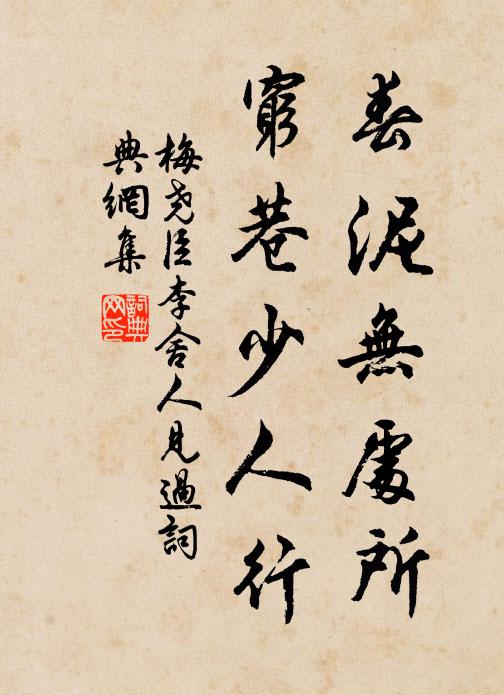 春泥無處所
窮巷少人行
梅堯臣李舍人見過詞
典網集
詞典
网印